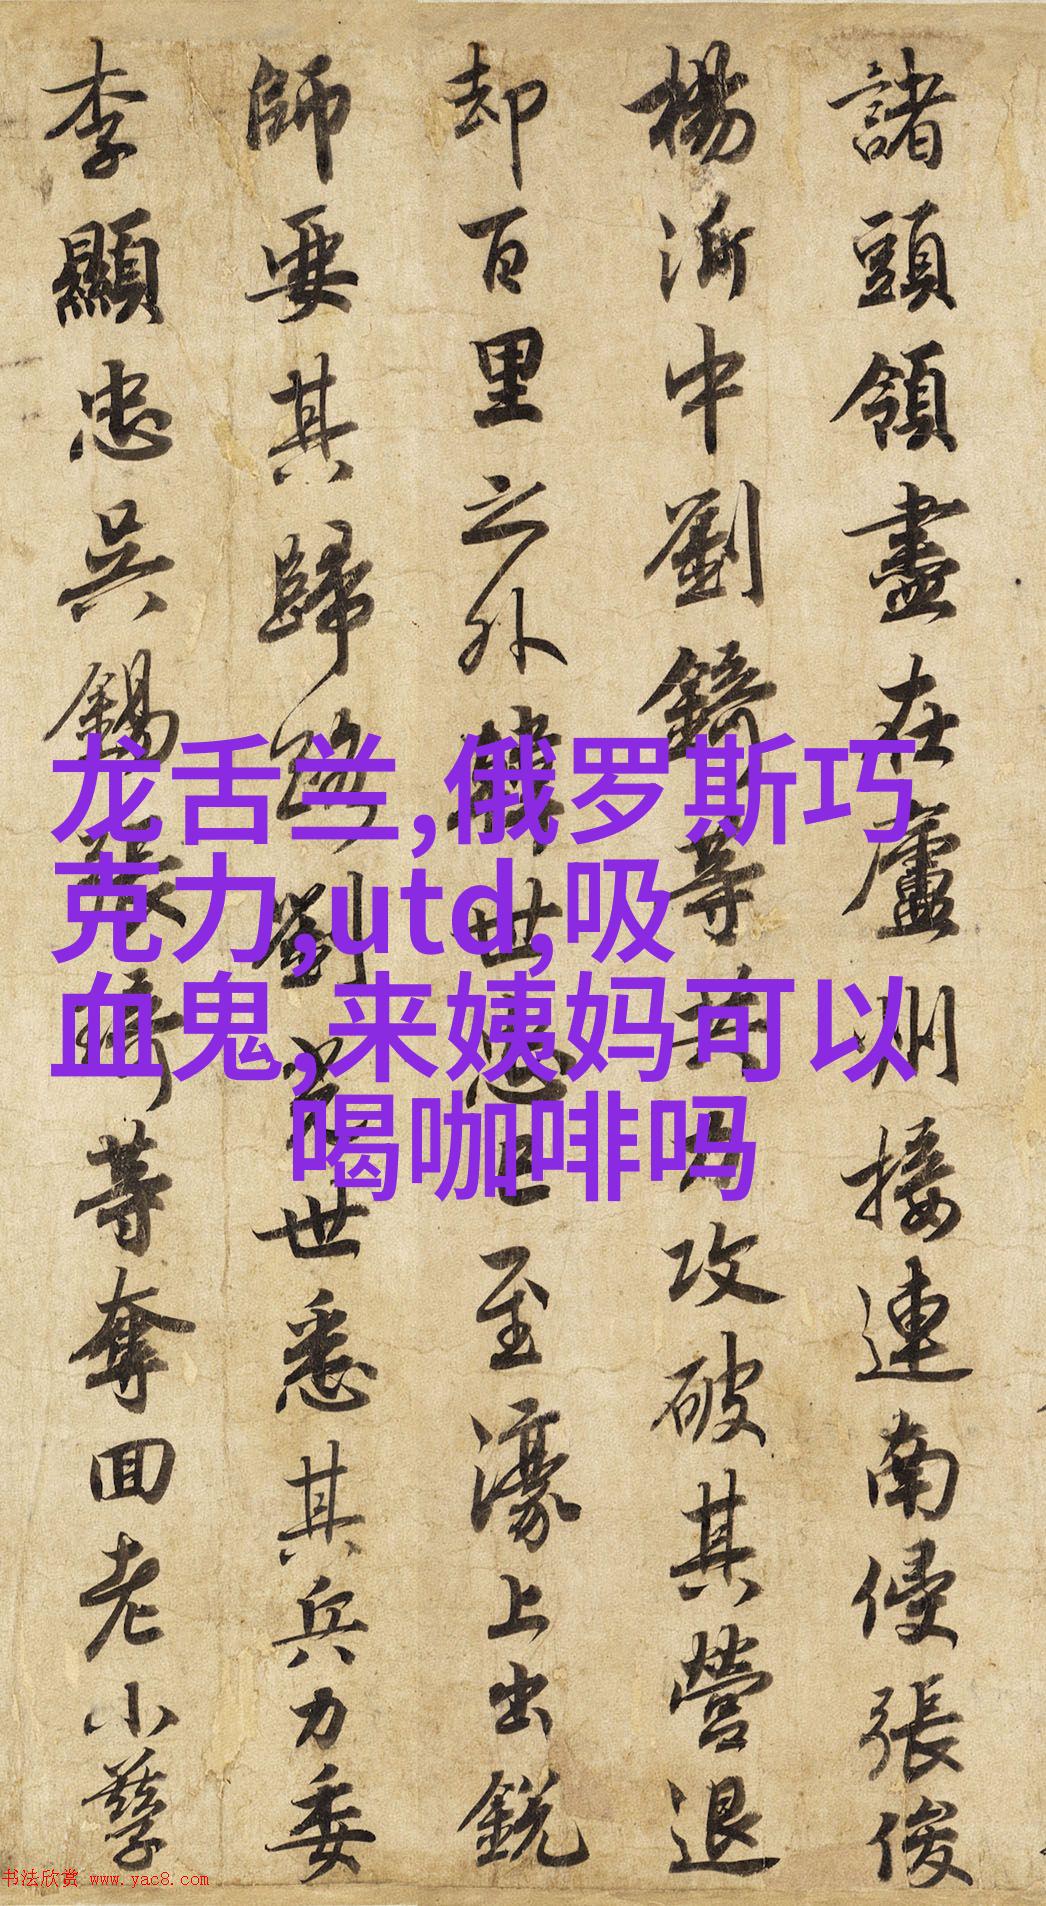 諸頭領盡在廬州接連南侵張俊
楊沂中劉錡等共力攻破其營退
却百里之外韓世忠已至濠上出銳
師要其歸路劉光世悉其兵力委
李顯忠吳錫張琦等奪回老小孳
龙舌兰,俄罗斯巧
克力,utd,吸
血鬼,来姨妈可以
喝咖啡吗
书法欣赏 www.yac8.com